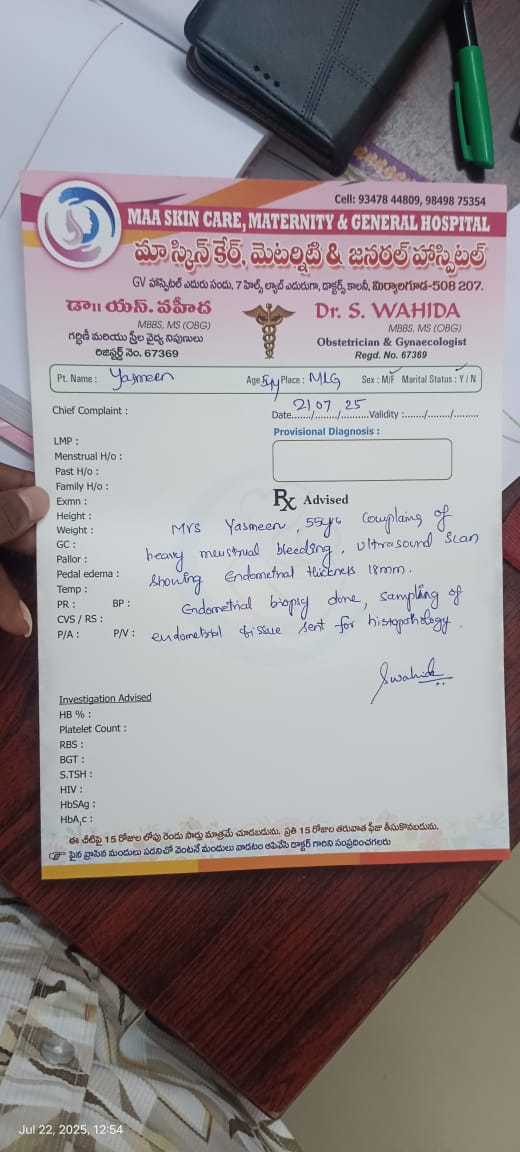 Cell: 93478 44809, 98498 75354
MAA SKIN CARE, MATERNITY & GENERAL HOSPITAL
మా స్కిన్ కేర్, మెటర్నిటి & జనరల్ హాస్పిటల్
GV హాస్పిటల్ ఎదురు సందు, 7 హిల్స్ ల్యాబ్ ఎదురుగా, డాక్టర్స్ కాలనీ, మిర్యాలగూడ-508 207.
డా॥ యస్. వహీద
MBBS, MS (OBG)
గర్భిణీ మరియు స్త్రీల వైద్య నిపుణులు
రిజిస్టర్ నెం. 67369
Dr. S. WAHIDA
MBBS, MS (OBG)
Obstetrician & Gynaecologist
Regd. No. 67369
Pt. Name : Yasmeen Age Place : MLG Sex : M/F Marital Status : Y / N
Chief Complaint :
Date 21/07/25 Validity :....../......./........
Provisional Diagnosis :
LMP :
Menstrual H/o :
Past H/o :
Family H/o :
Exmn :
Height :
Weight :
GC :
Pallor :
Pedal edema :
Temp :
PR : BP :
CVS / RS :
P/A : P/V :
Rx Advised
Mrs Yasmeen, 55yrs Complains of
heavy menstrual bleeding. Ultrasound scan
showing Endometrial thickness 18mm.
Endometrial biopsy done, sampling of
endometrial tissue sent for histopathology.
Swahida
Investigation Advised
HB % :
Platelet Count :
RBS :
BGT :
S.TSH :
HIV :
HbSAg :
HbA,c :
ఈ చీటీపై 15 రోజుల లోపు రెండు సార్లు మాత్రమే చూడబడును. ప్రతి 15 రోజుల తరువాత ఫీజు తీసుకొనబడును.
పైన వ్రాసిన మందులు పడనిచో వెంటనే మందులు వాడటం ఆపివేసి డాక్టర్ గారిని సంప్రదించగలరు
Jul 22, 2025, 12:54